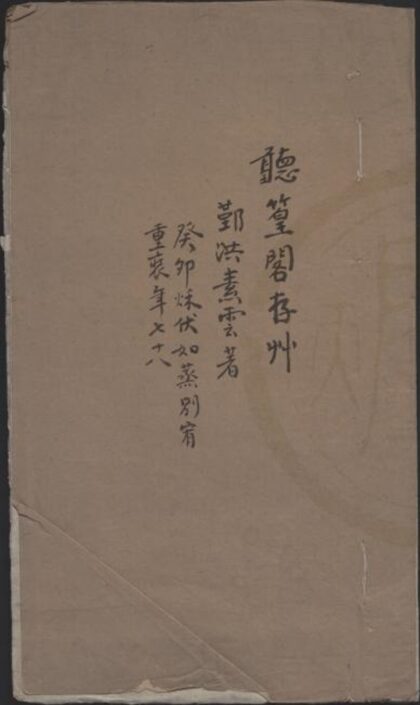 聽篁閣存艸
鄞洪素雲著
癸卯秌伏如蒸別宥
重裝年七十八